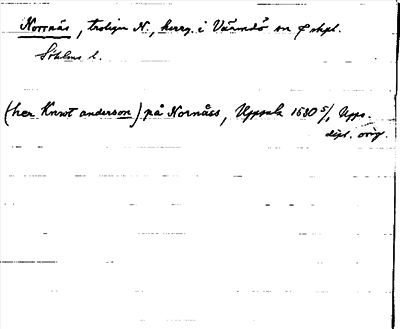 Norrnäs, troligen N., herrg. i Värmdö sn o skpl.
Sthlms l.
(her Knwt anderson) på Nornäss, Uppsala 1530 5/1 Upps.
dipl. orig.